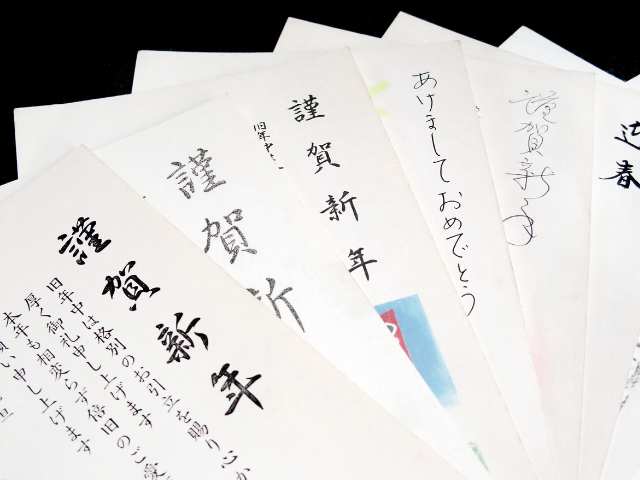 謹賀新年
旧年中は格別のお引立を賜り心か
厚く御礼申し上げます
本年も相変らず倍旧のご愛
願い申し上げます
旦
謹賀新
謹賀新年
旧年中
あけまして おめでとう
謹賀新年
迎春